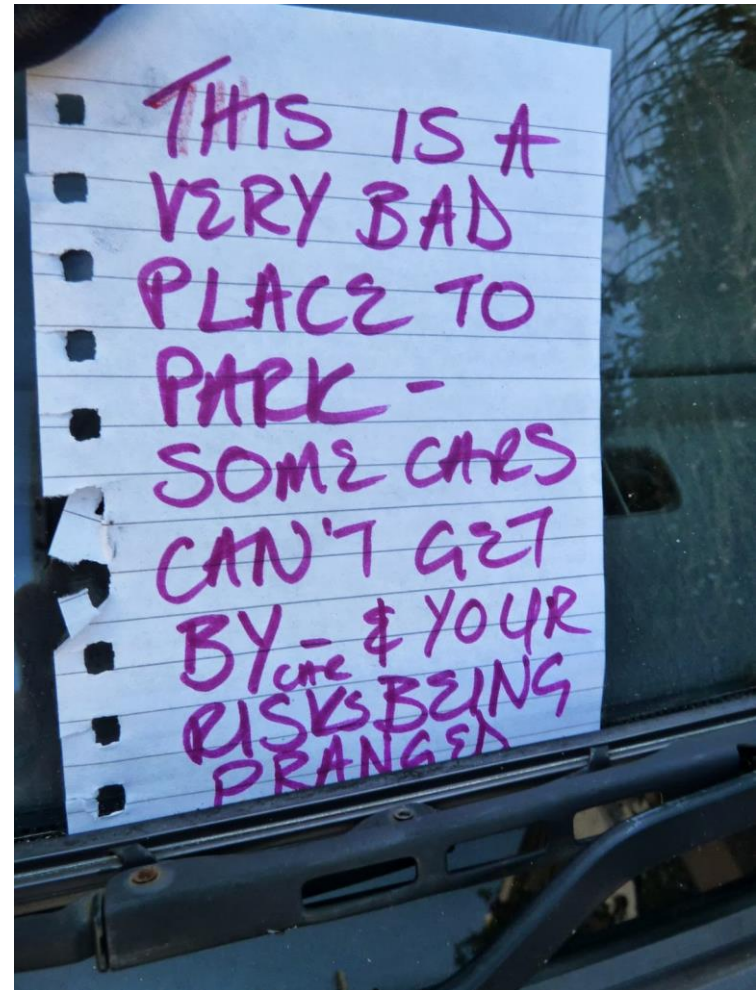 THIS IS A
VERY BAD
PLACE TO
PARK -
SOME CARS
CAN'T GET
BY - & YOUR
car
RISKS BEING
PRANGED